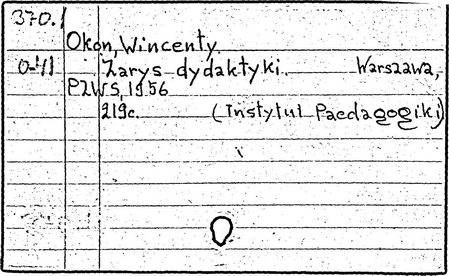 370.1
Okon, Wincenty.
0-41 Zarys dydaktyki. Warszawa,
PZWS, 1956
219c. (Instytut Paedagogiki)